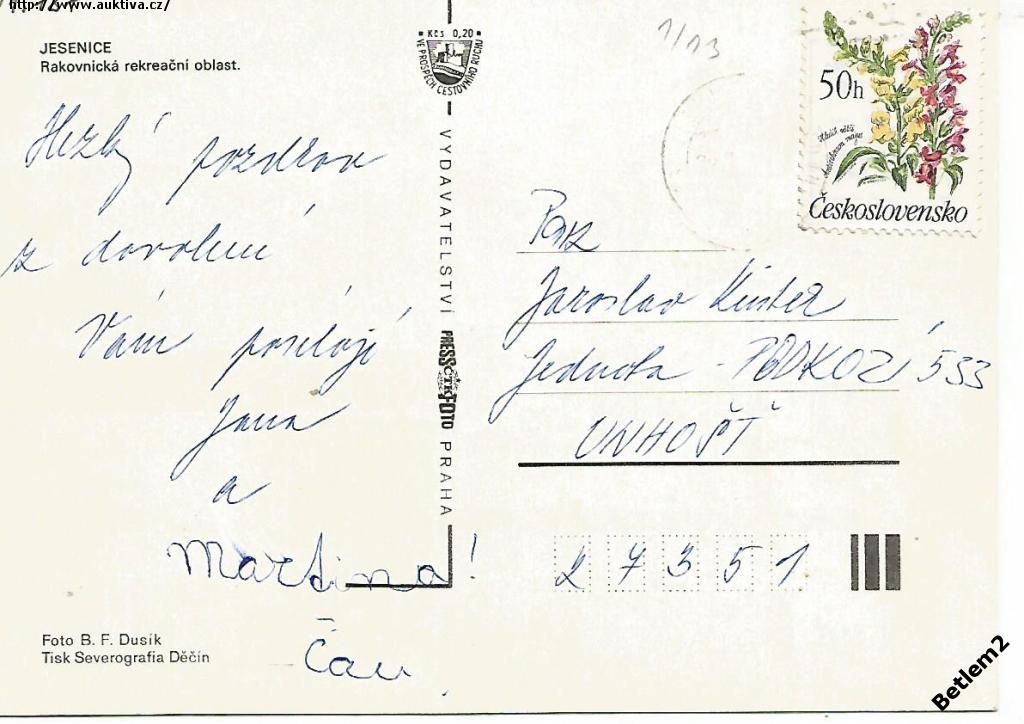 http://www.auktiva.cz/
JESENICE
Rakovnická rekreační oblast.
Hezký pozdrav
z dovolené
Vám posílají
Jana
a
Martina!
Čau
Foto B. F. Dusík
Tisk Severografia Děčín
Kčs 0,20
VE PROSPĚCH CESTOVNÍHO RUCHU
VYDAVATELSTVÍ PRESSFOTO PRAHA
ČTK
1/13
50h
Československo
Pan
Jaroslav
Jednota - PODKOZÍ 533
UNHOŠŤ
27351
Betlem2